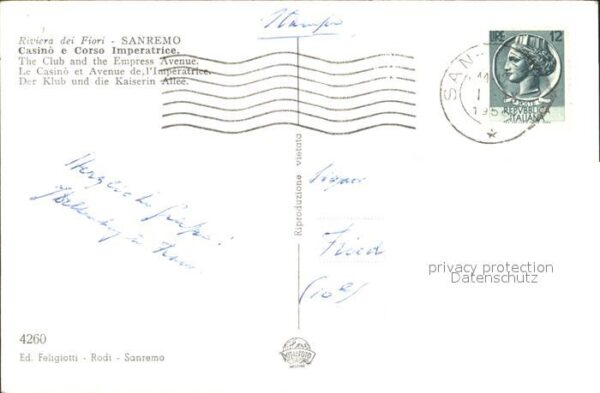 Stampe
Riviera dei Fiori - SANREMO
Casinò e Corso Imperatrice.
The Club and the Empress Avenue.
Le Casinò et Avenue de,l'Imperatrice.
Der Klub und die Kaiserin Allee.
LIRE 12
REPVBBLICA
ITALIANA
SAN
195
Herzliche Grüße!
Riproduzione vietata
Signor
Fried
privacy protection
Datenschutz
4260
Ed. Feligiotti - Rodi - Sanremo